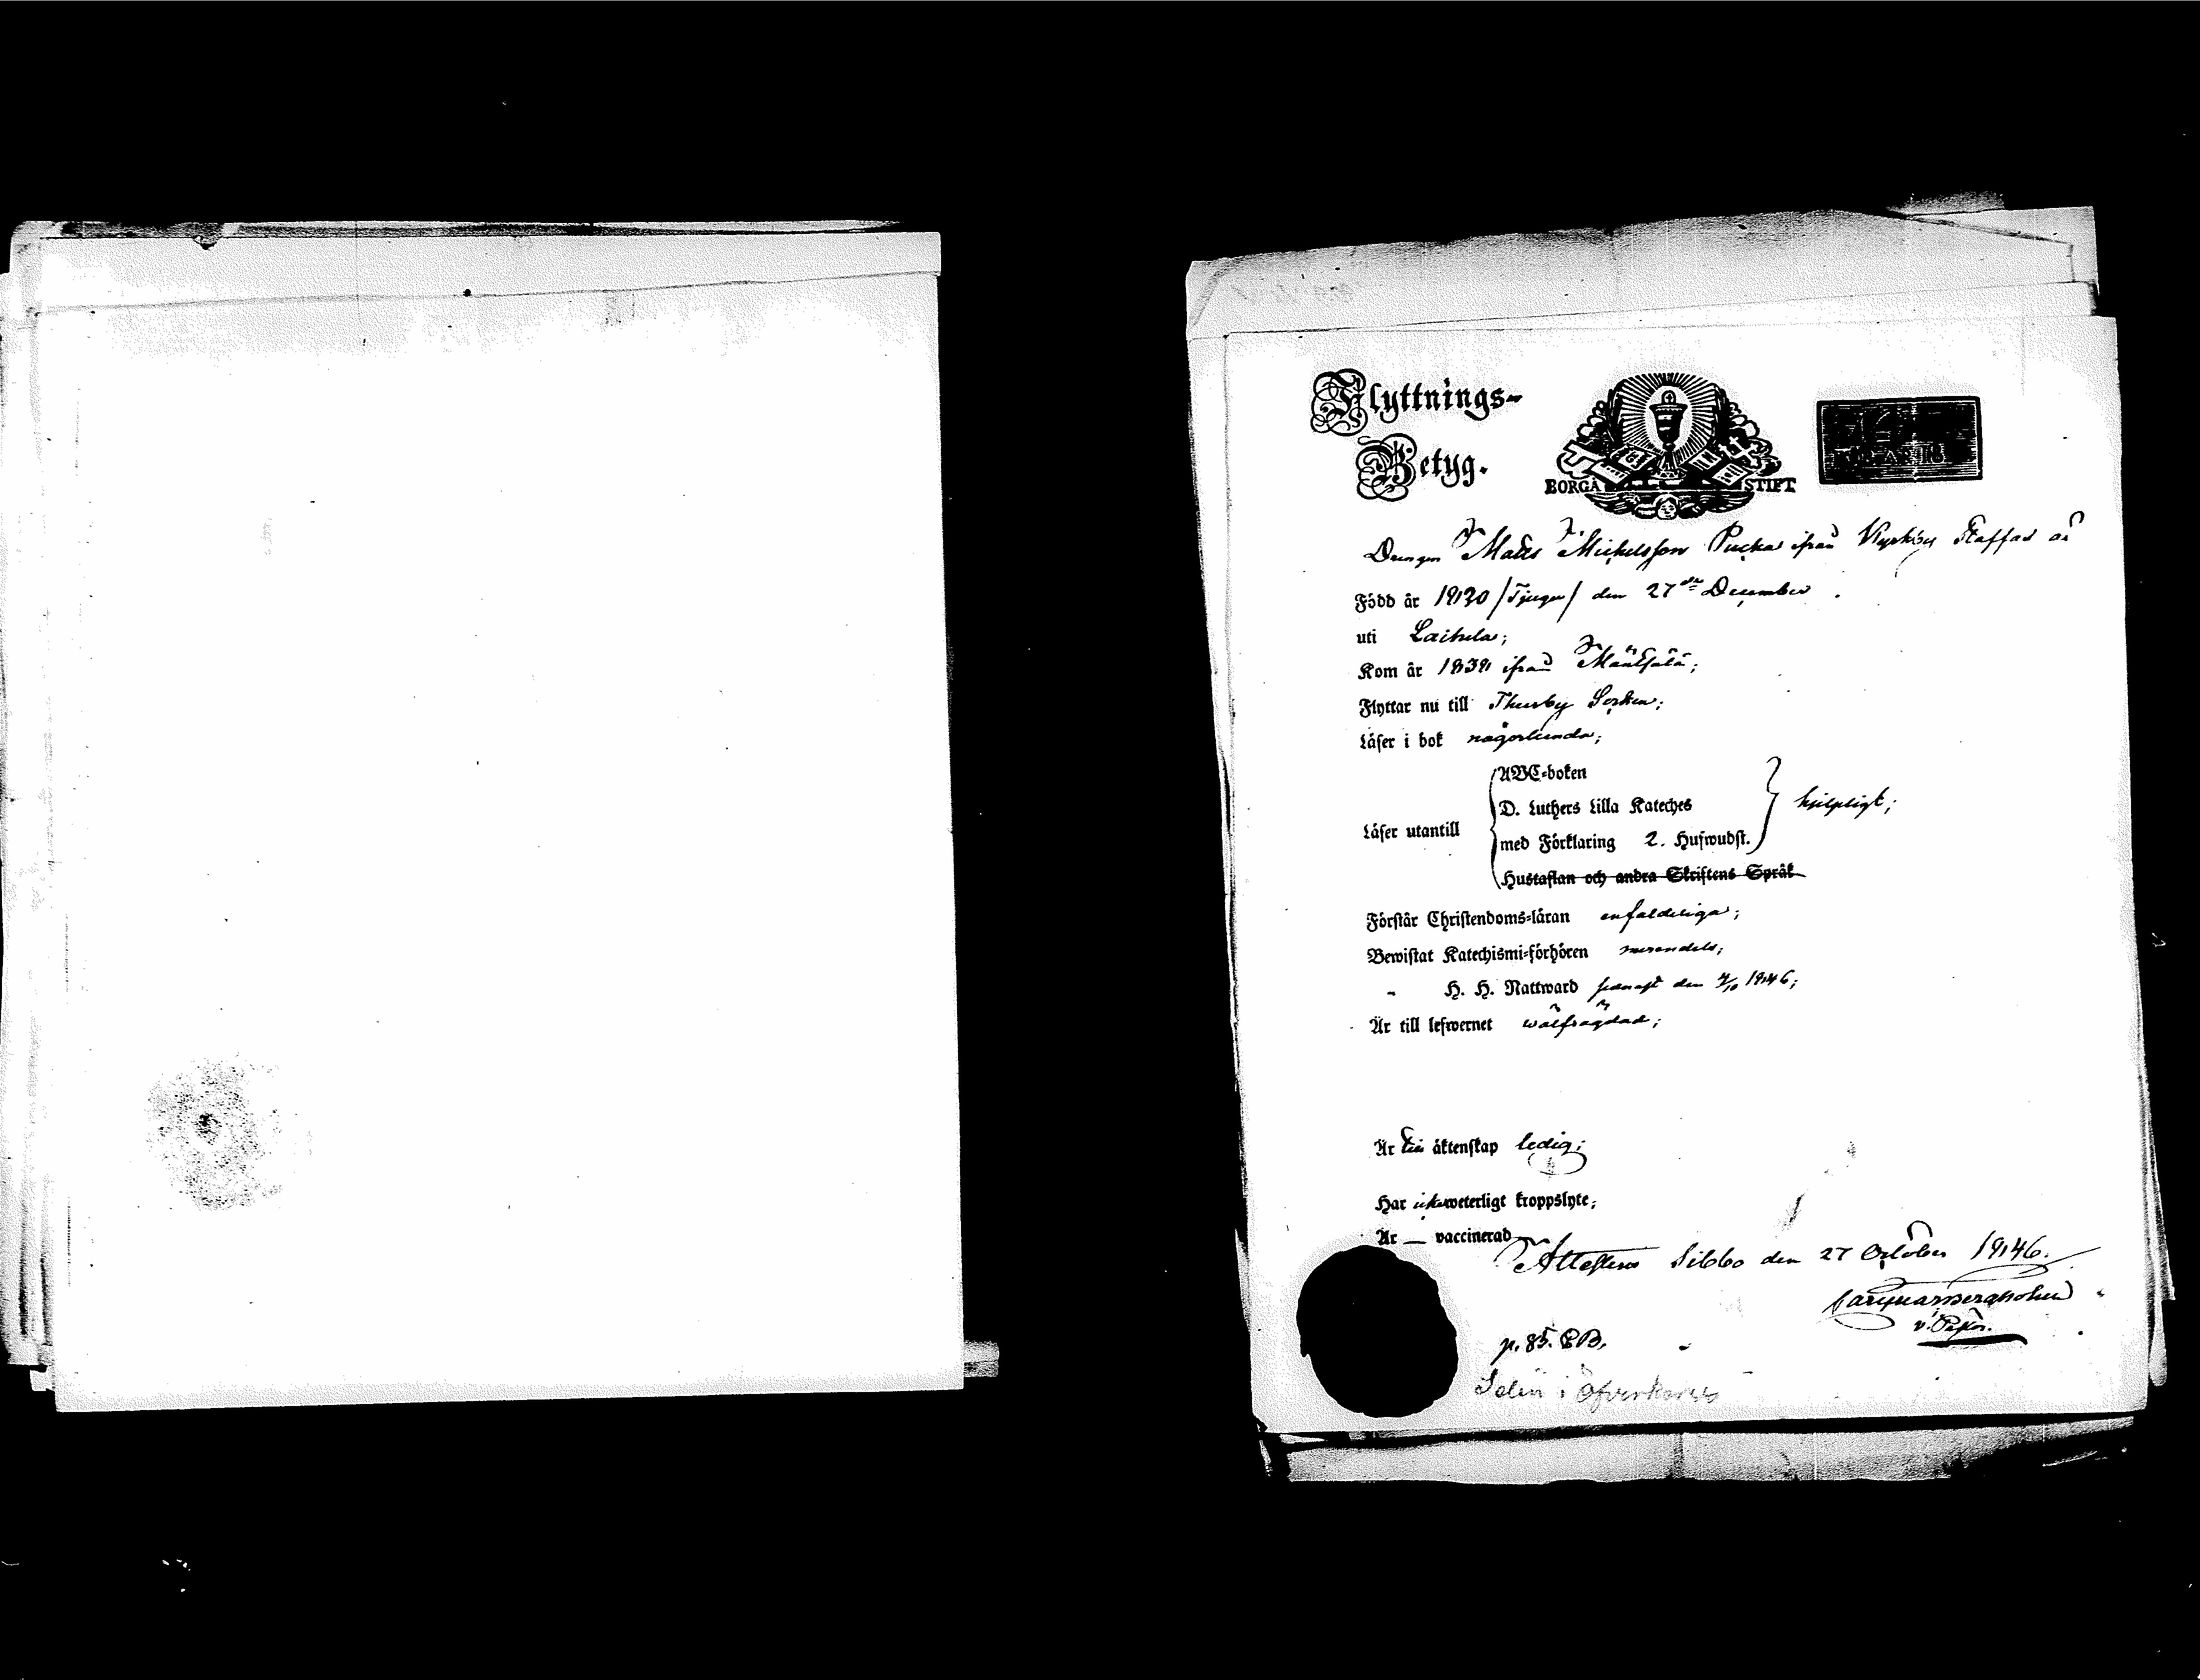 Flyttnings-
Betyg.
BORGÅ STIFT
Drengen Matts Michelsson Pucka ifrån Kyrkoby Staffas är
Född år 1820 /Tjugu/ den 27de December.
uti Laihela;
Kom år 1839 ifrån Mäntsälä;
Flyttar nu till Thusby Socken;
Läser i bok någorlunda;
ABC-boken
D. Luthers Lilla Kateches
Läser utantill
hjelpligt;
med Förklaring 2. Hufwudst.
Hustaflan och andra Skriftens Språk
Förstår Christendoms-läran enfaldeliga;
Bewistat Katechismi-förhören merendels;
" H. H. Nattward senast den 4/10 1846;
Är till lefwernet wälfrägdad;
Är till äktenskap ledig;
Har icke weterligt kroppslyte;
Är — vaccinerad
Attestera Sibbo den 27 October 1846.
v. Pastor.
p. 85. CB.